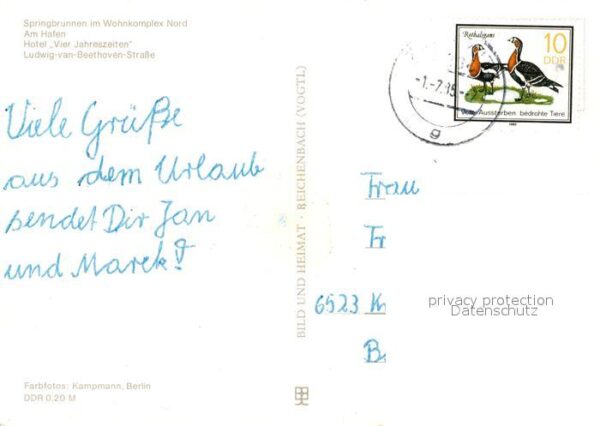 Springbrunnen im Wohnkomplex Nord
Am Hafen
Hotel „Vier Jahreszeiten"
Ludwig-van-Beethoven-Straße
Viele Grüße
aus dem Urlaub
sendet Dir Jan
und Marek!
Farbfotos: Kampmann, Berlin
DDR 0,20 M
BILD UND HEIMAT · REICHENBACH (VOGTL)
Rothalsgans
10
DDR
Vom Aussterben bedrohte Tiere
1985
g
Frau
Fr
6523 K
B
privacy protection
Datenschutz